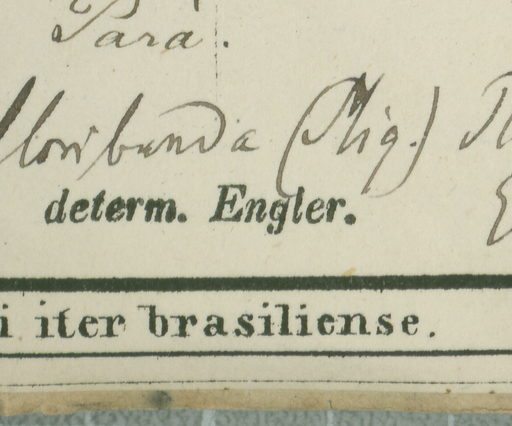 Para.
floribunda (Miq.)
determ. Engler.
i iter brasiliense.